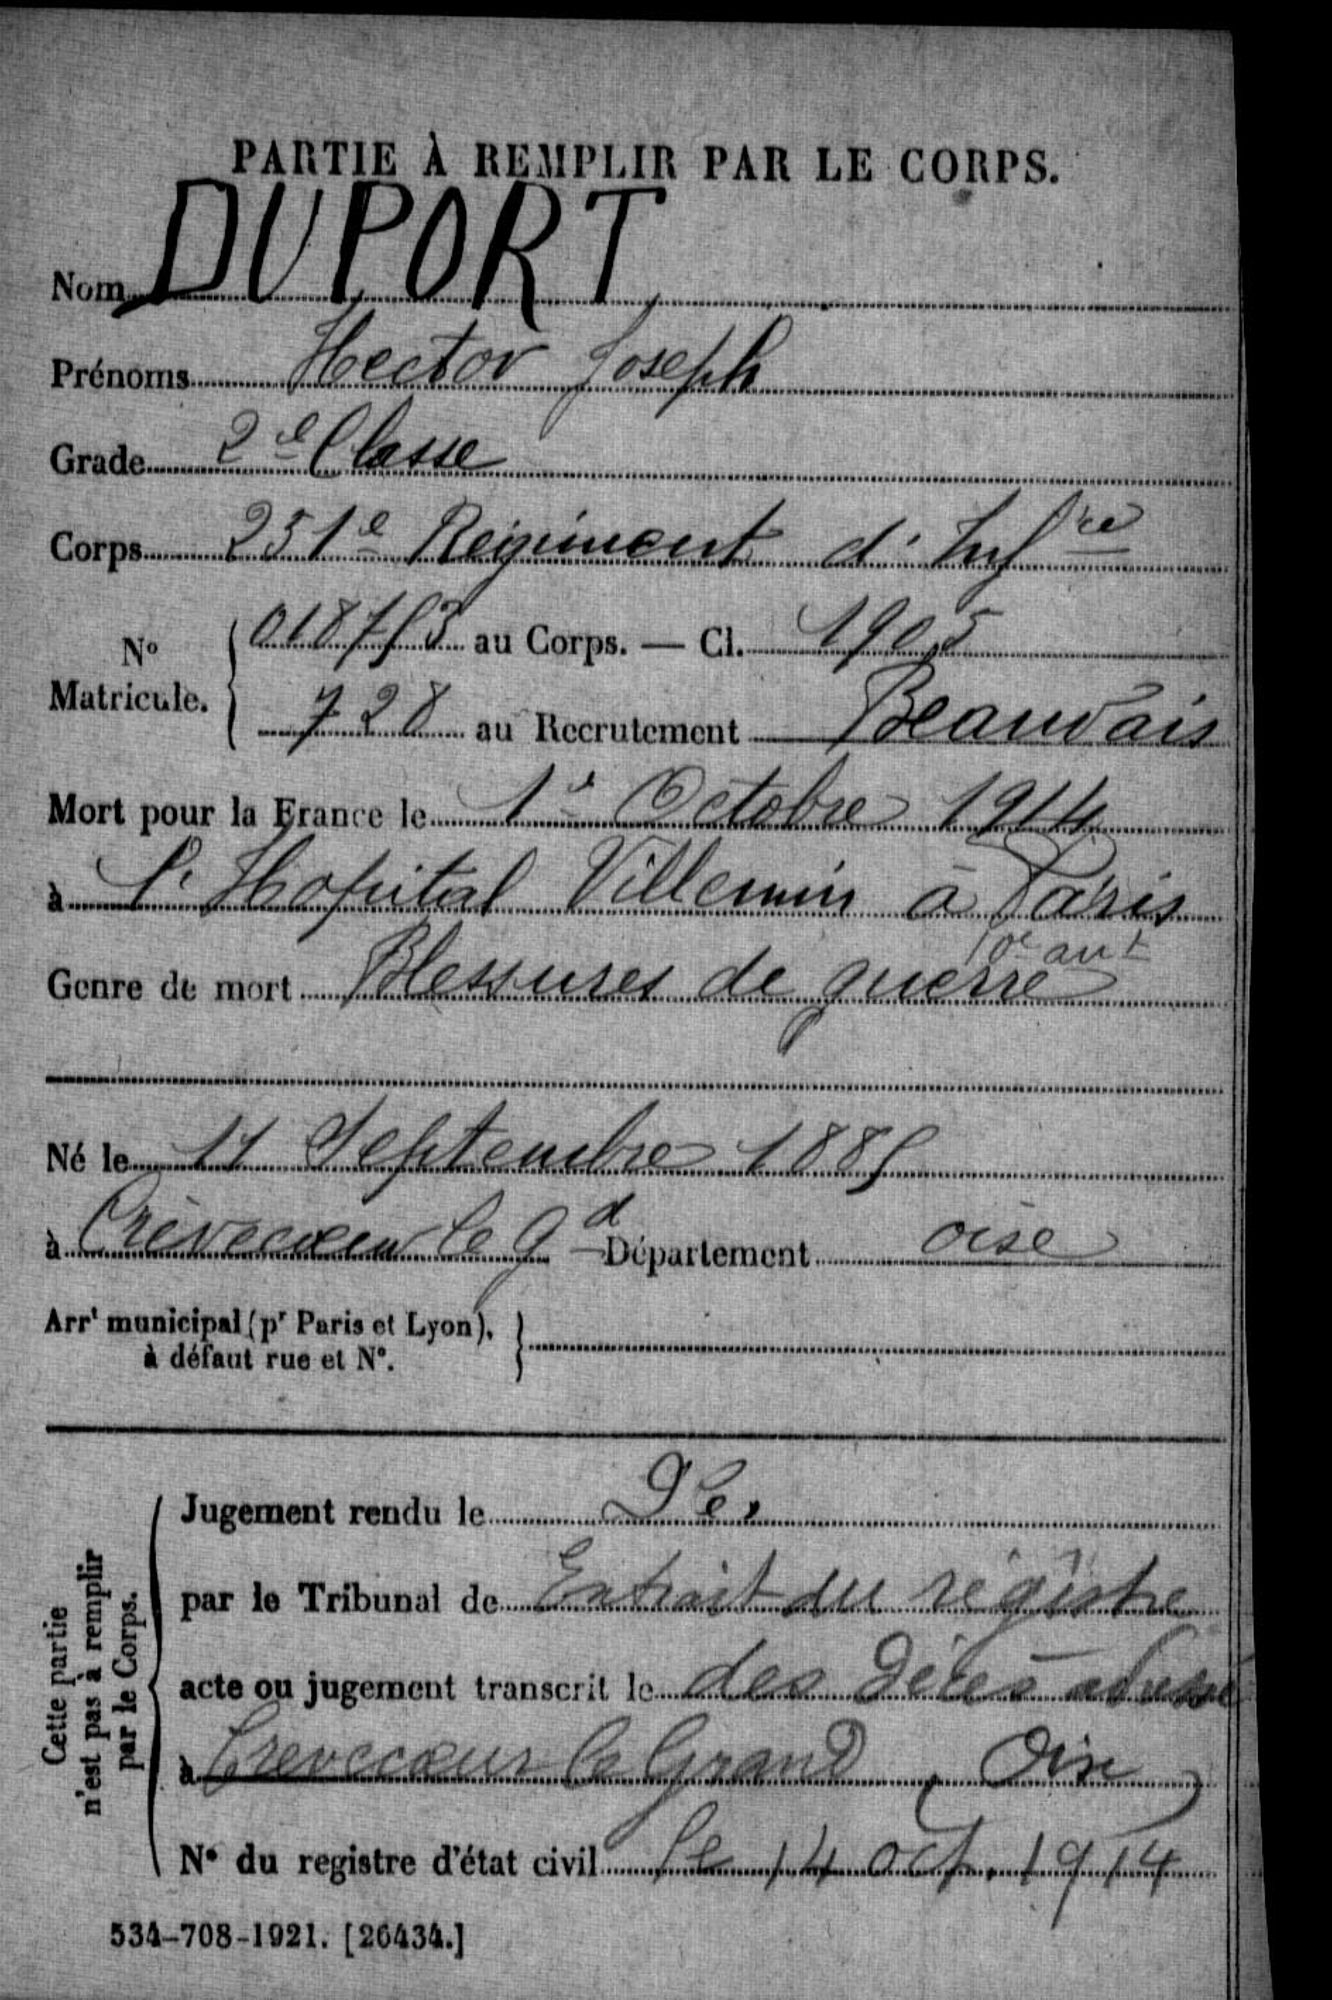 PARTIE À REMPLIR PAR LE CORPS.
Nom DUPORT
Prénoms Hector Joseph
Grade 2e Classe
Corps 251e Régiment d'Infrie
No Matricule. { 018753 au Corps. — Cl. 1905
728 au Recrutement Beauvais
Mort pour la France le 1e Octobre 1914
à l'Hopital Villemin à Paris
10e arrt
Genre de mort Blessures de guerre
Né le 11 Septembre 1885
à Crèvecoeur le Gd Département Oise
Arrt municipal (pr Paris et Lyon), à défaut rue et N°. }
Cette partie n'est pas à remplir par le Corps.
Jugement rendu le
par le Tribunal de Extrait du régistre
acte ou jugement transcrit le des Décès adressé
à Crevecoeur le Grand (Oise)
N° du registre d'état civil le 14 oct. 1914
534-708-1921. [26434.]